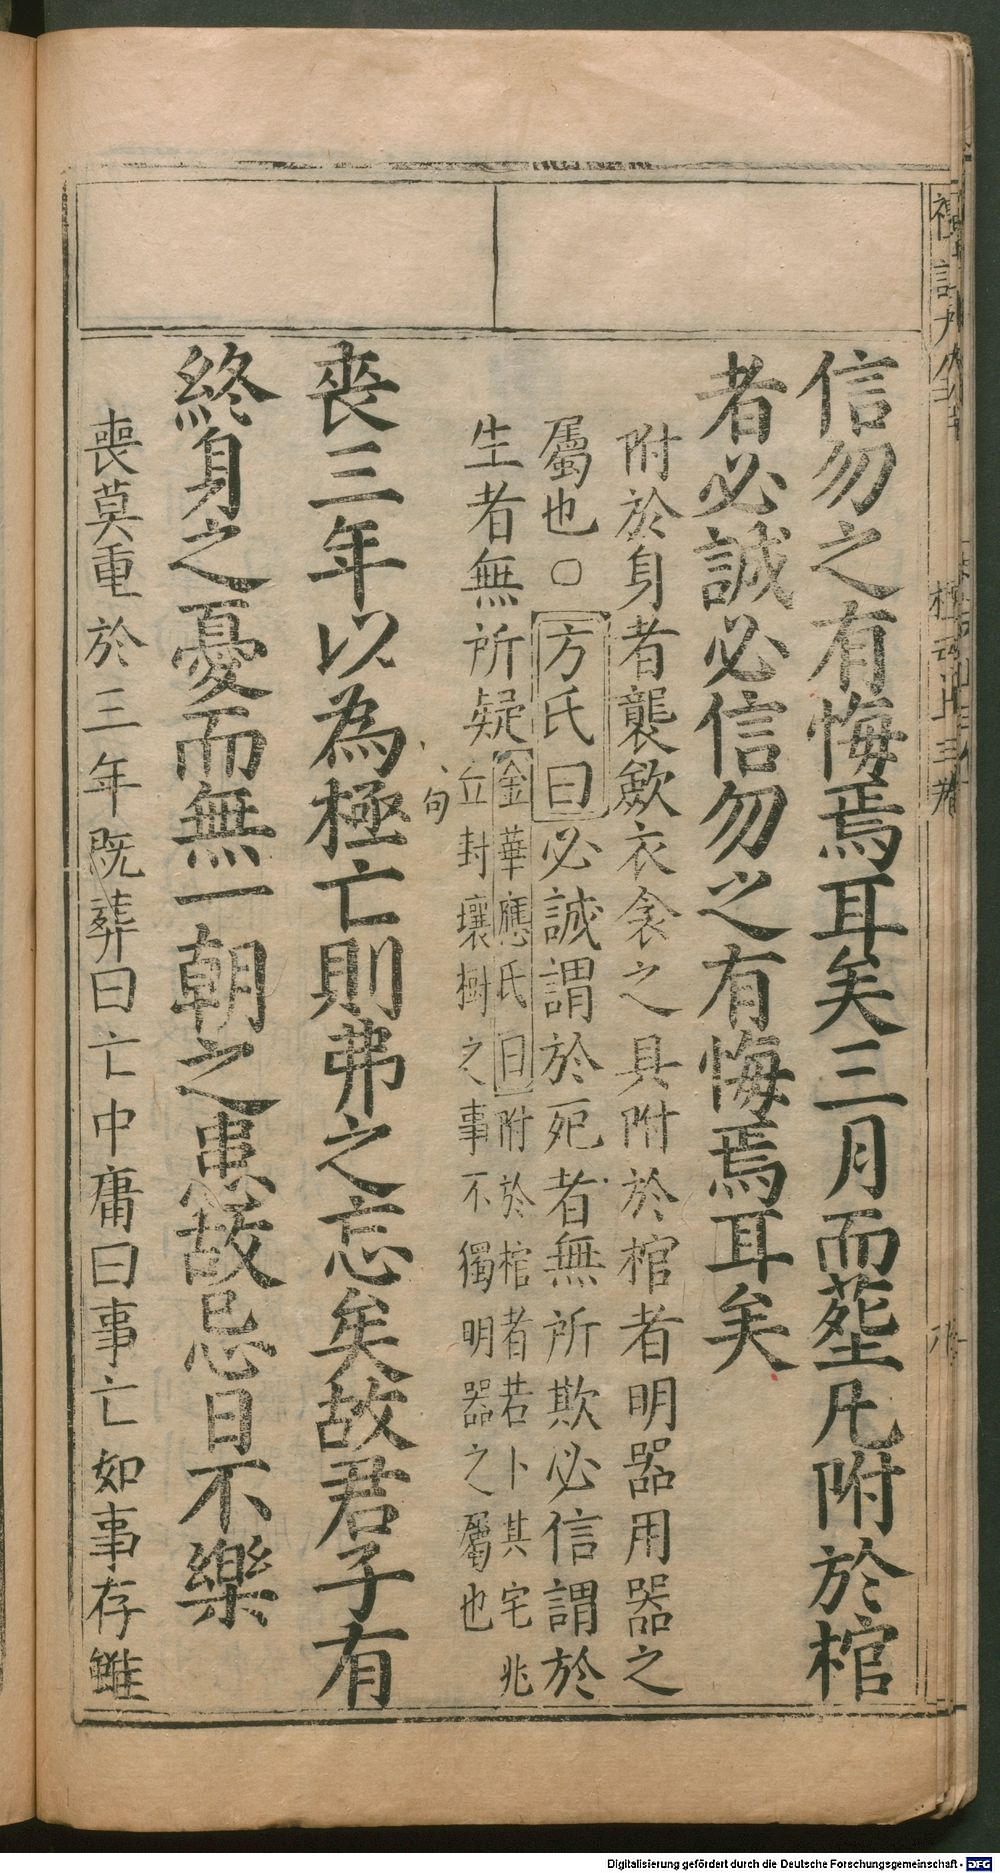 信勿之有悔焉耳矣三月而塟凡附於棺
者必誠必信勿之有悔焉耳矣
附於身者襲歛衣衾之具附於棺者明器用器之
屬也○方氏曰必誠謂於死者無所欺必信謂於
生者無所疑
金華應氏曰附於棺者若卜其宅兆
丘封壤樹之事不獨明器之屬也
喪三年以為極亡則弗之忘矣故君子有
句
終身之憂而無一朝之患故忌日不樂
喪莫重於三年既葬曰亡中庸曰事亡如事存雖
Digitalisierung gefördert durch die Deutsche Forschungsgemeinschaft - DFG